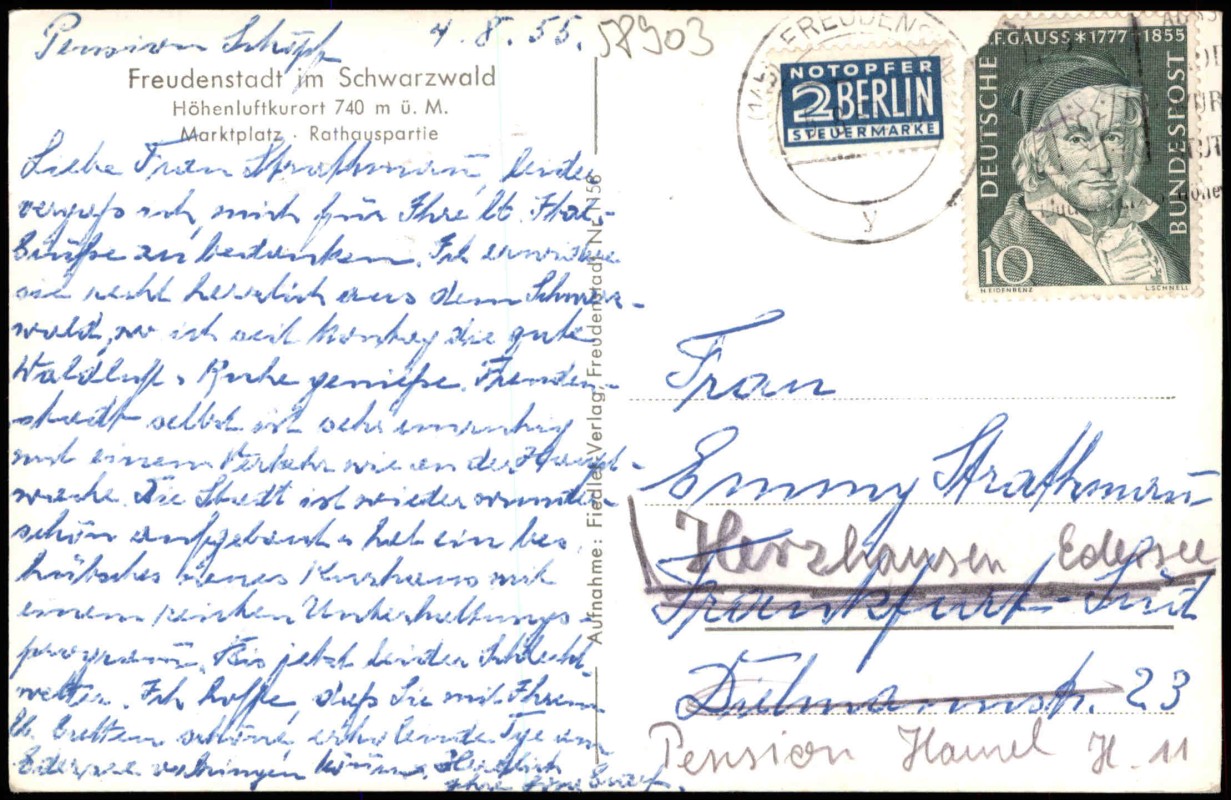 Pension Schöpf 4.8.55.
58903
Freudenstadt im Schwarzwald
Höhenluftkurort 740 m ü. M.
Marktplatz · Rathauspartie
Liebe Frau Strathmann, leider
vergaß ich, mich für Ihre lb.
Grüße zu bedanken. Ich erwidere
sie recht herzlich aus dem Schwarz-
wald, wo ich seit Montag die gute
Waldluft u. Ruhe genieße. Freuden-
stadt selbst ist sehr unruhig
mit einem Verkehr wie an der Haupt-
wache. Die Stadt ist wieder wunder-
schön aufgebaut u. hat ein
hübsches neues Kurhaus mit
einem reichen Unterhaltungs-
programm. Bis jetzt leider Schlecht-
wetter. Ich hoffe, daß Sie mit Ihrem
lb. Gatten schöne, erholende Tage am
Edersee verbringen können. Herzlich
Ihre
Aufnahme: Fiedler-Verlag, Freudenstadt Nr. N 56
FREUDENS
NOTOPFER
2 BERLIN
STEUERMARKE
y
C.F. GAUSS * 1777-1855
DEUTSCHE
BUNDESPOST
10
H. EIDENBENZ
L. SCHNELL
Frau
Emmy Strathmann
Herzhausen Edersee
Frankfurt-Süd
Dielmannstr. 23
Pension Hamel H. 11